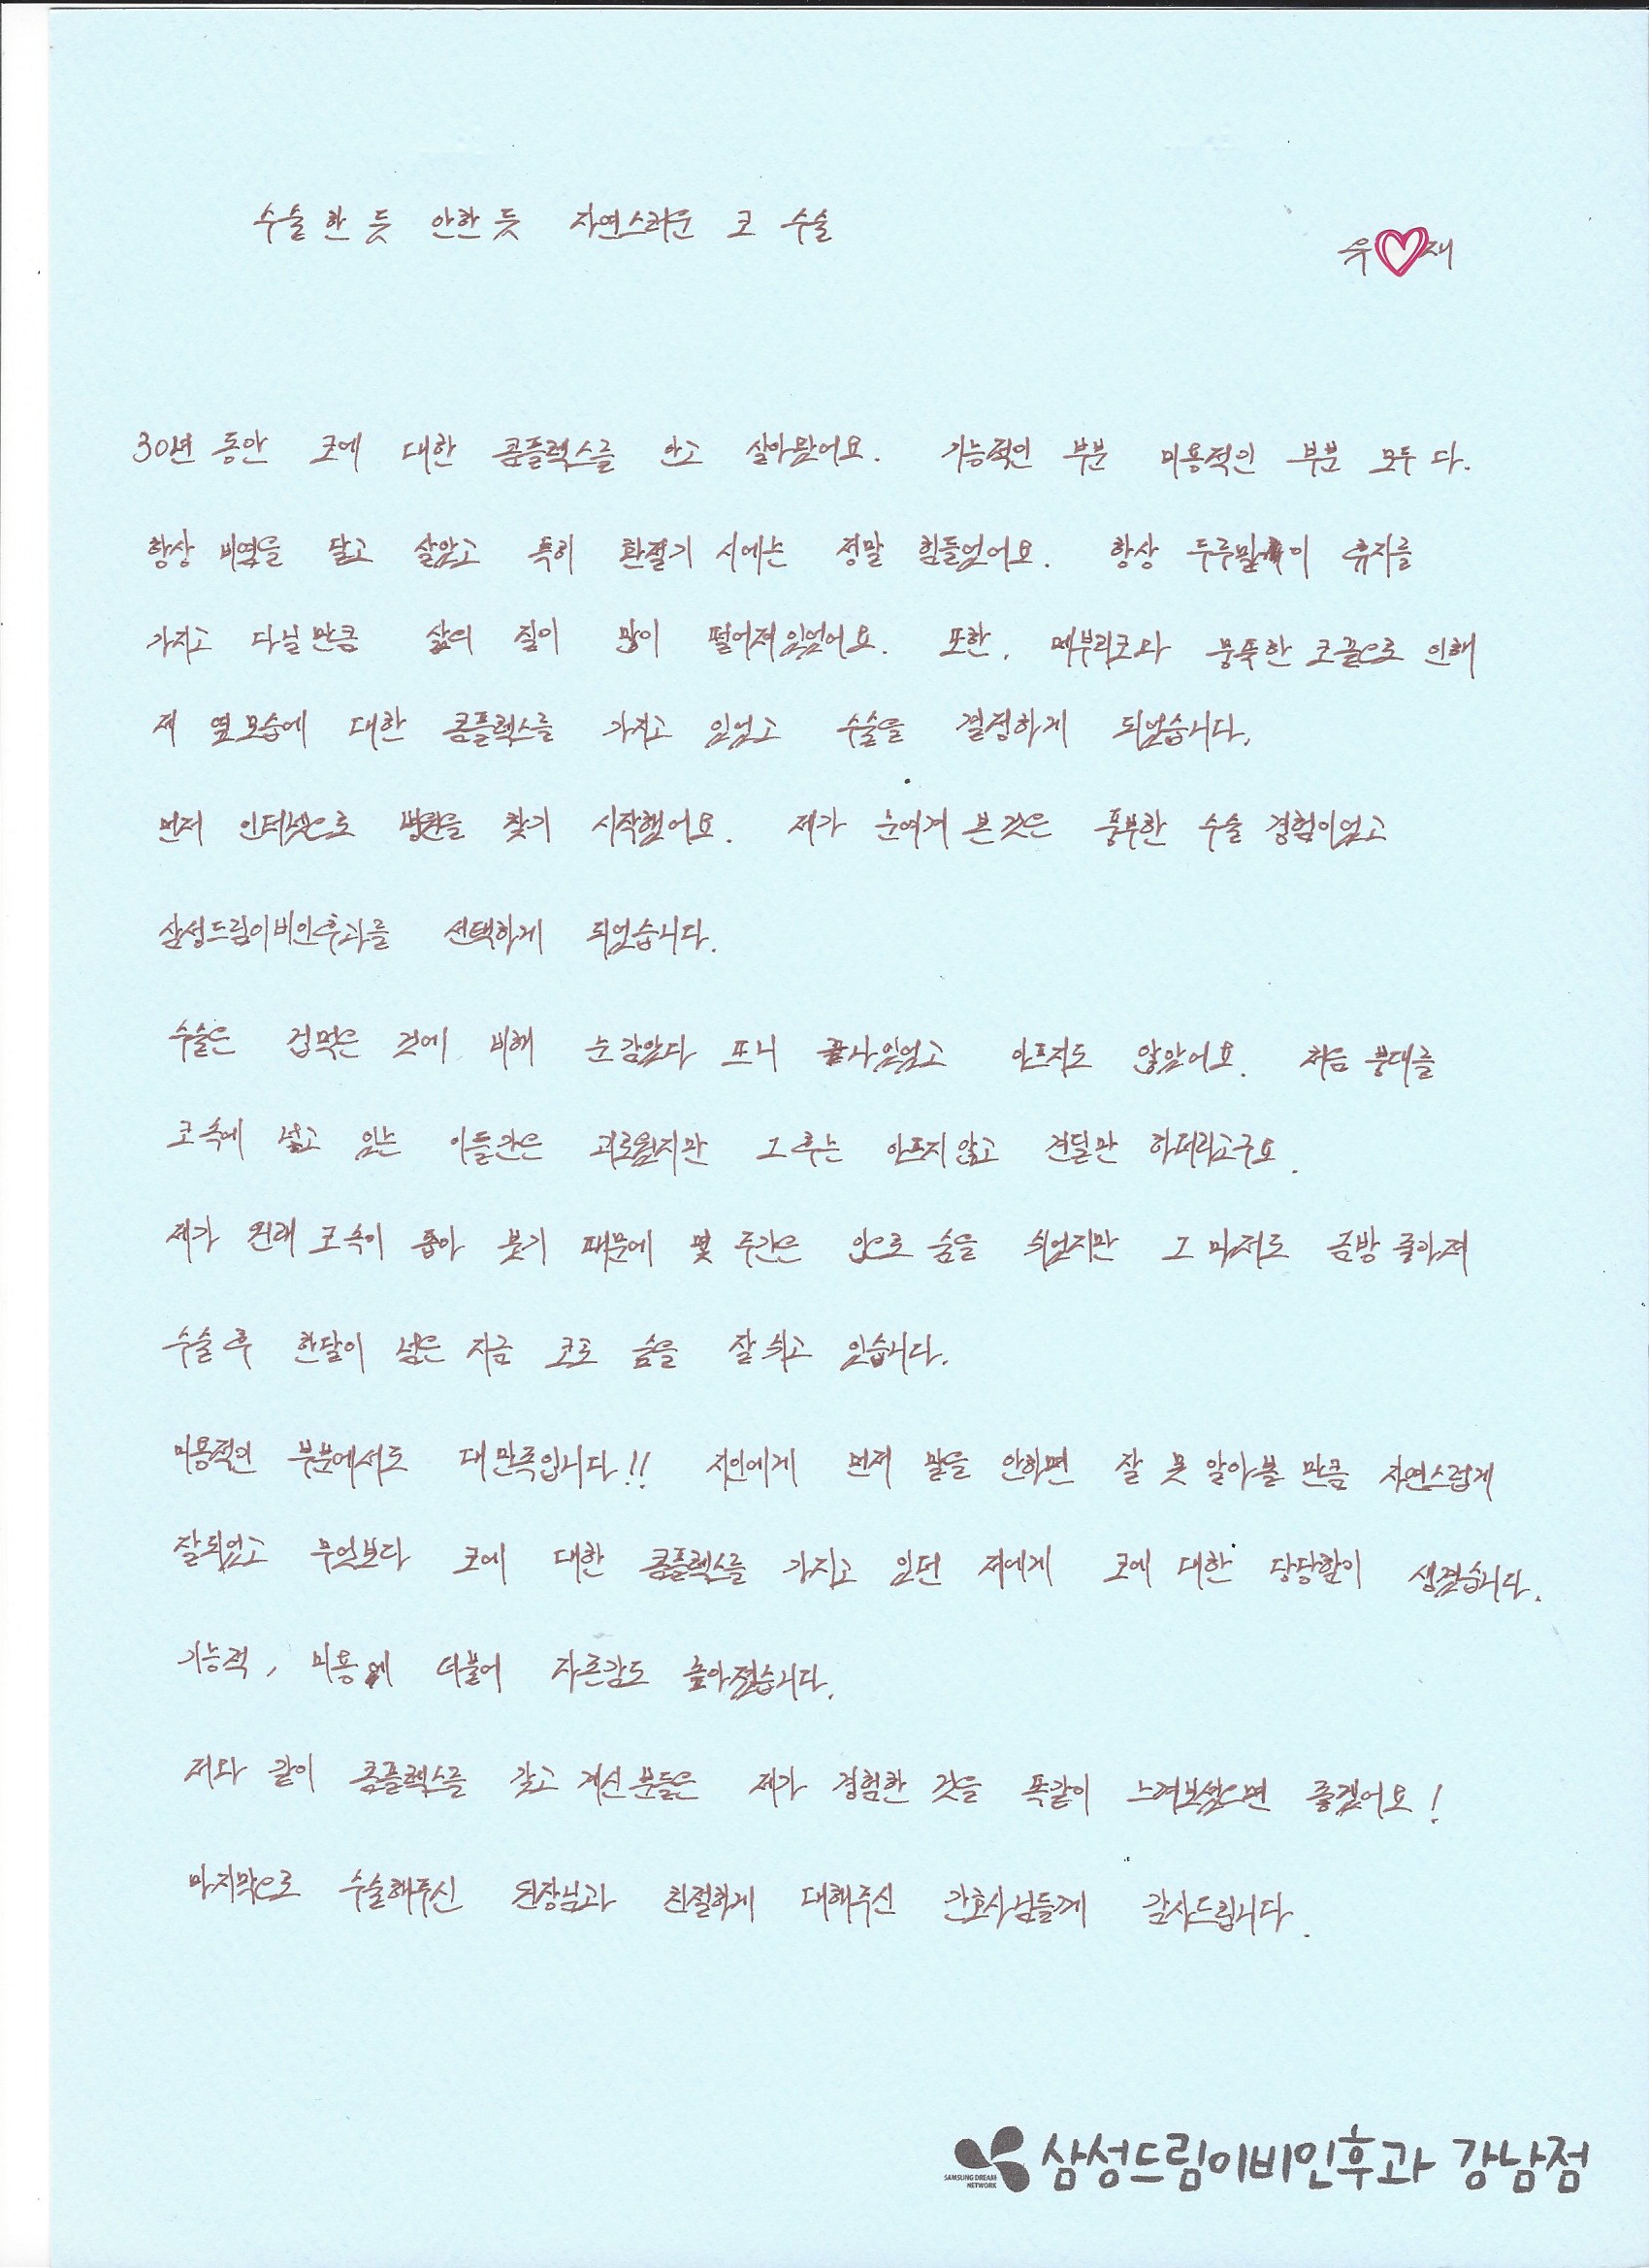 수술 한 듯 안한 듯 자연스러운 코 수술
우♡재
30년 동안 코에 대한 콤플렉스를 안고 살아왔어요. 기능적인 부분 미용적인 부분 모두 다.
항상 비염을 달고 살았고 특히 환절기 시에는 정말 힘들었어요. 항상 두루말이 휴지를
가지고 다닐만큼 삶의 질이 많이 떨어져있었어요. 또한, 메부리코와 뭉뚝한 코끝으로 인해
제 옆모습에 대한 콤플렉스를 가지고 있었고 수술을 결정하게 되었습니다.
먼저 인터넷으로 병원을 찾기 시작했어요. 제가 눈여겨 본 것은 풍부한 수술 경험이었고
삼성드림이비인후과를 선택하게 되었습니다.
수술은 겁먹은 것에 비해 눈 감았다 뜨니 끝나있었고 아프지도 않았어요. 처음 붕대를
코 속에 넣고 있는 이틀간은 괴로웠지만 그 후는 아프지 않고 견딜만 하더라고구요.
제가 원래 코 속이 좁아 붓기 때문에 몇 주간은 입으로 숨을 쉬었지만 그 마저도 금방 좋아져
수술 후 한달이 넘은 지금 코로 숨을 잘 쉬고 있습니다.
미용적인 부분에서도 대만족입니다!! 지인에게 먼저 말을 안하면 잘 못 알아볼 만큼 자연스럽게
잘되었고 무엇보다 코에 대한 콤플렉스를 가지고 있던 저에게 코에 대한 당당함이 생겼습니다.
기능적, 미용에 더불어 자존감도 높아졌습니다.
저와 같이 콤플렉스를 갖고 계신 분들은 제가 경험한 것을 똑같이 느껴보셨으면 좋겠어요!
마지막으로 수술해주신 원장님과 친절하게 대해주신 간호사님들께 감사드립니다.
SAMSUNG DREAM
NETWORK
삼성드림이비인후과 강남점